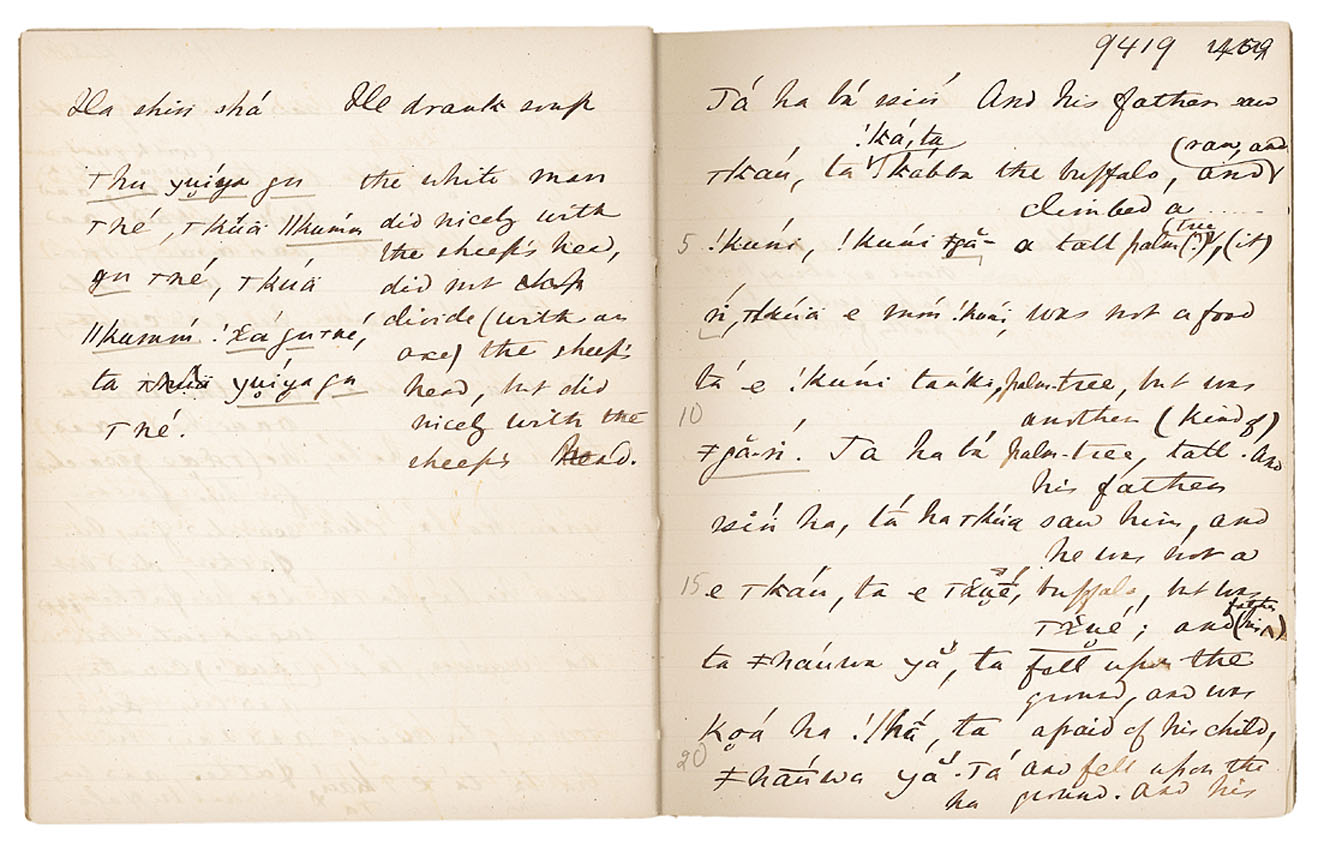 Ha shin shá He drank soup
Thu yuíya gu the white man
Tné, Tkúä ǁkumm did nicely with
the sheep's head,
gu Tné, Tkúä did not
divide (with an
ǁkumm ! gu Tné, axe) the sheep's
ta yuíya gu head, but did
Tné. nicely with the
sheep's head.
9419
Tá ha bá ssiń And his father saw
!ká, ta (ran, and
Tkáu, ta !kabba the buffalo, and
climbed a ......
5 !kúni, !kúni ǂgā- a tall palm tree (?), (it)
ŕi, Tkúä e !kúni, was not a food
tá e !kúni palm-tree, but was
10 another (kind of)
ǂgā-ŕi. Ta ha bá palm-tree, tall. And
his father
ssiń ha, tá ha Tkúa saw him, and
he was not a
15 e Tkáu, ta e buffalo, but was
father
; and (his)
ta ǂháuwa yă, ta fell upon the
ground, and was
koá ha !ǀhā, ta afraid of his child,
20 ǂháuwa yă. Tá and fell upon the
ha ground. And his